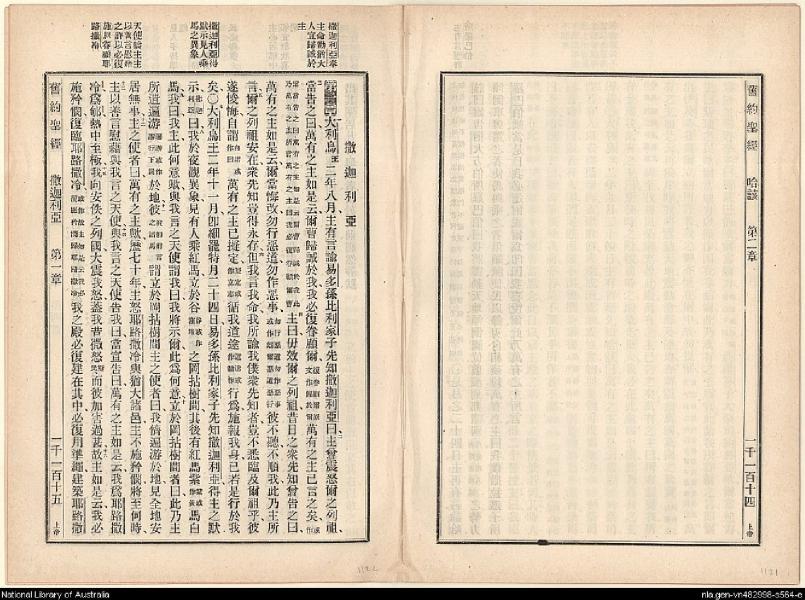 舊約聖經 哈該 第二章 一千一百十四 上帝
撒迦利亞奉
主命勸猶大
人宜歸誠於
主
撒迦利亞得
默示見人乘
馬之異象
天使禱主主
以善言慰藉
之許以必復
施恩眷顧耶
路撒冷
撒迦利亞
大利烏王二年八月主有言諭易多孫比利家子先知撒迦利亞曰主曾震怒爾之列祖
當告之曰萬有之主如是云爾曹歸誠於我我必復眷顧爾萬有之主已言之矣
主曰毋效爾之列祖昔日之衆先知曾告之曰
萬有之主如是云爾當悔改勿行惡道勿作惡事彼不聽不順我此乃主所
言爾之列祖安在衆先知豈得永存但我言我命我所諭我僕衆先知者豈不悉臨及爾祖乎彼
遂悛悔自謂萬有之主已擬定循我道途行爲施報我身已若是行於我
矣〇大利烏王二年十一月卽細罷特月二十四日易多孫比利家子先知撒迦利亞得主之默
示曰我於夜觀異象見有人乘紅馬立於谷之岡拈樹間其後有紅馬紫馬白
馬我曰我主此何意歟與我言之天使謂我曰我將示爾此爲何意立於岡拈樹間者曰此乃主
所遣遍游於地彼謂立於岡拈樹間主之使者曰我儕遍游於地見全地安
居無事主之使者曰萬有之主歟歷七十年主怒耶路撒冷與猶大諸邑主不施矜憫將至何時
主以善言慰藉與我言之天使與我言之天使告我曰當宣告曰萬有之主如是云我爲耶路撒
冷爲郇熱中至極我向安佚之列國大震我怒蓋我昔微怒而彼加害過甚故主如是云我必
施矜憫復臨耶路撒冷我之殿必復建在其中必復用準繩建築耶路撒
舊約聖經 撒迦利亞 第一章 一千一百十五 上帝
1122
1121
National Library of Australia
nla.gen-vn482998-s564-e